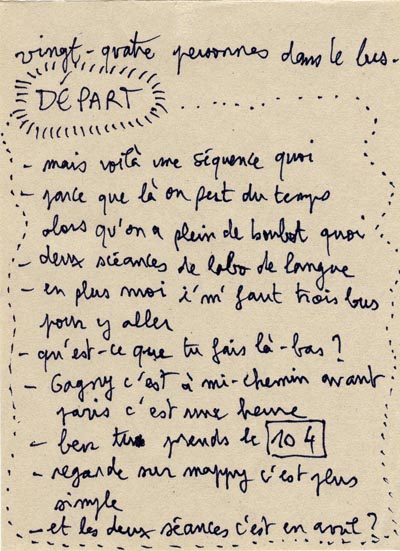 vingt-quatre personnes dans le bus.
DÉPART
- mais voilà une séquence quoi
- parce que là on perd du temps
alors qu'on a plein de boulot quoi
- deux séances de labo de langue
- en plus moi i' m' faut trois bus
pour y aller
- qu'est-ce que tu fais là-bas ?
- Gagny c'est à mi-chemin avant
paris c'est une heure
- ben tu prends le 104
- regarde sur mappy c'est plus
simple
- et les deux séances c'est en avril ?